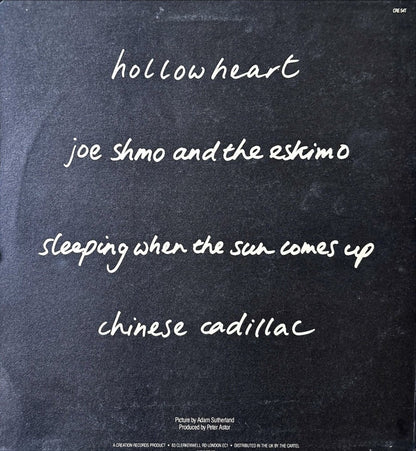 CRE 54T
hollow heart
joe shmo and the eskimo
sleeping when the sun comes up
chinese cadillac
Picture by Adam Sutherland
Produced by Peter Astor
A CREATION RECORDS PRODUCT • 83 CLERKENWELL RD LONDON EC1 • DISTRIBUTED IN THE UK BY THE CARTEL